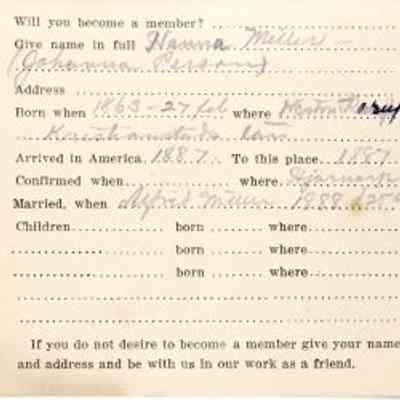 Will you become a member? ..........
Give name in full Hanna Miller –
(Johanna Person)
Address ..........
Born when 1863 – 27 feb where
Kristianstads län
Arrived in America 1887. To this place 1887
Confirmed when .......... where
Married, when Alfred Miller 1888
Children .......... born ....... where .......
.......... born ....... where .......
.......... born ....... where .......
If you do not desire to become a member give your name
and address and be with us in our work as a friend.